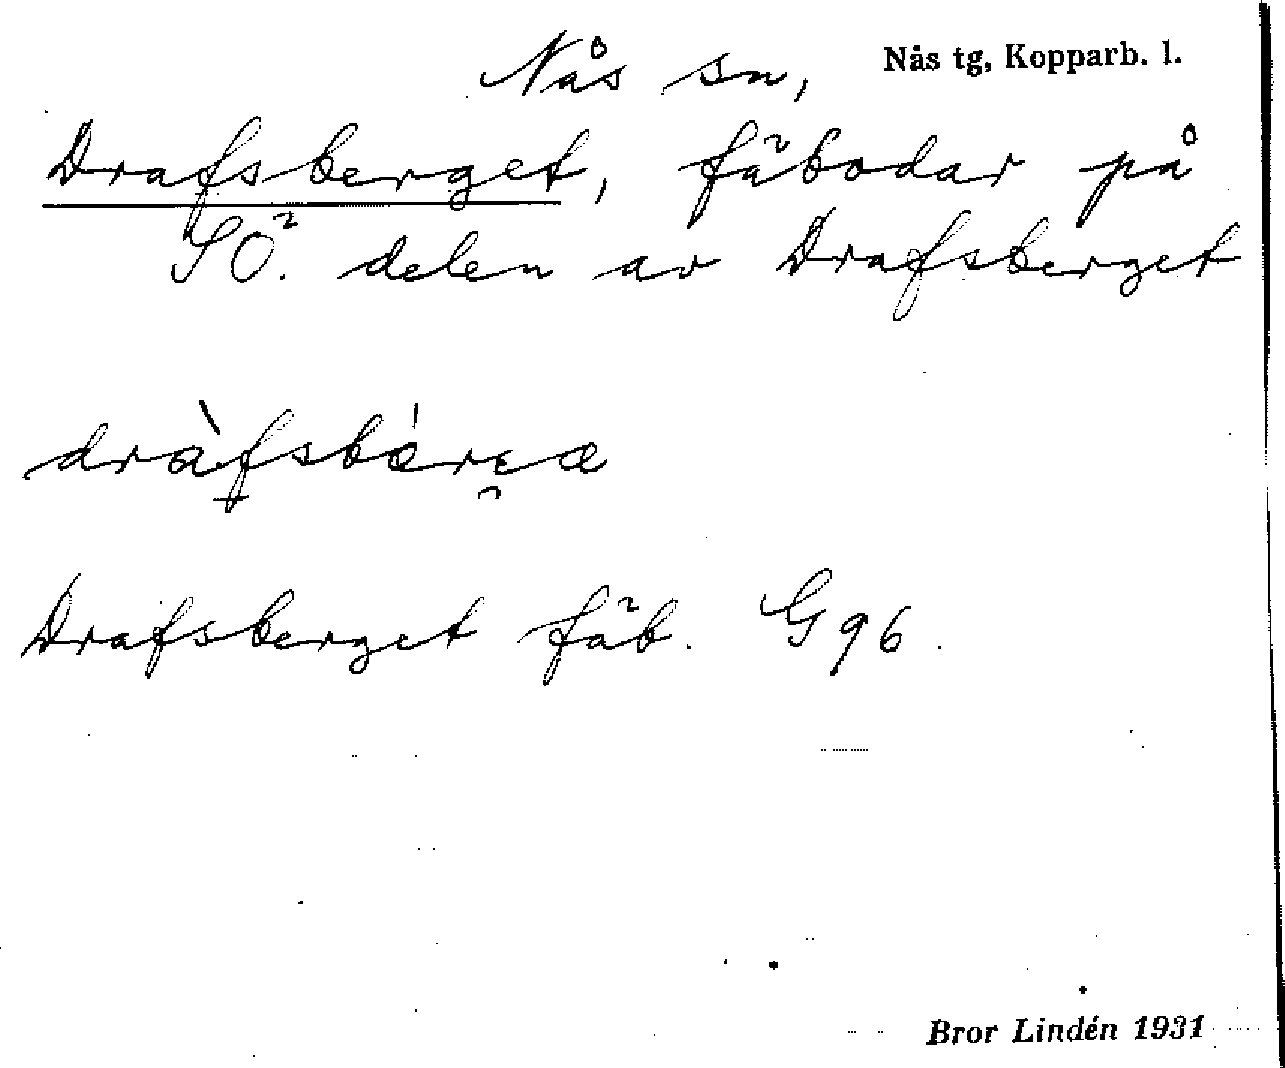 Nås sn, Nås tg, Kopparb. l.
Drafsberget, fäbodar på
SÖ. delen av Drafsberget
Drafsberget fäb. G 96.
Bror Lindén 1931